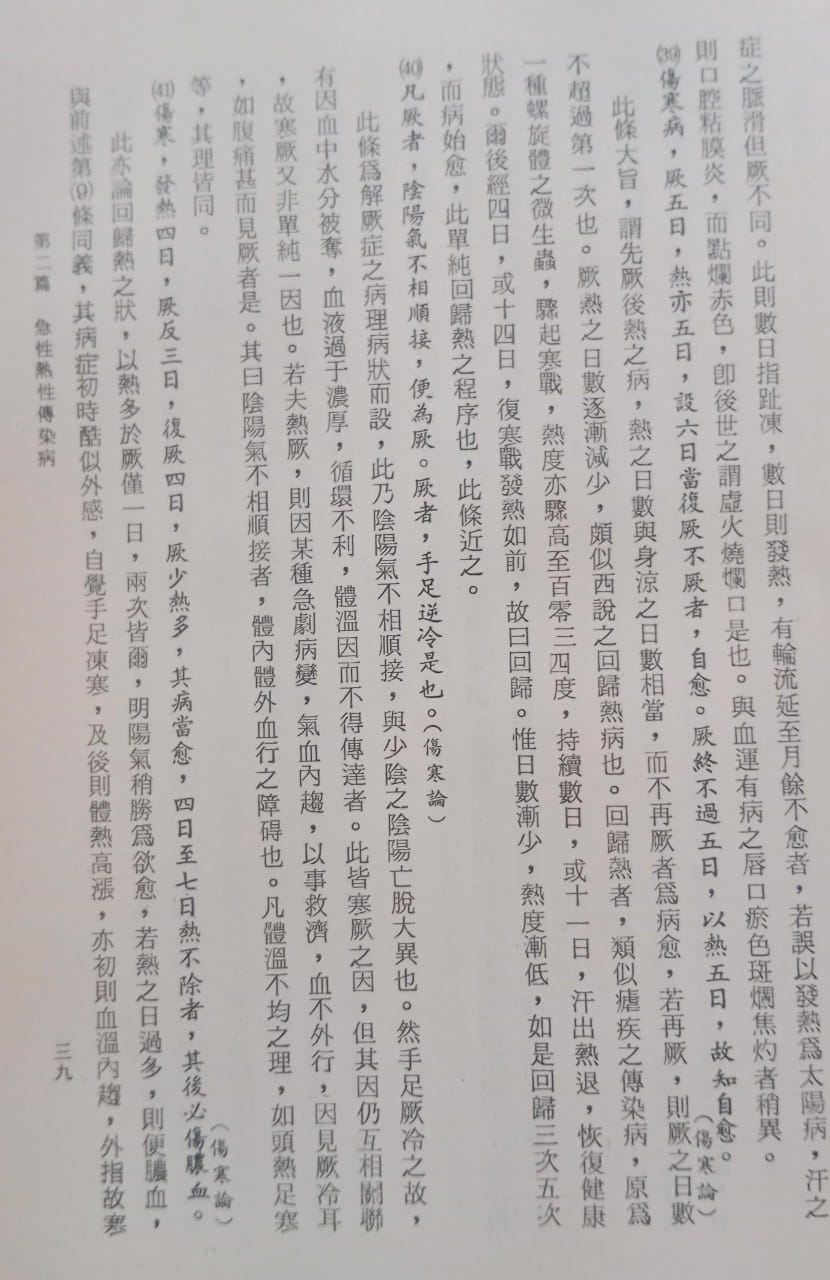 症之脈滑但厥不同。此則數日指趾凍，數日則發熱，有輪流延至月餘不愈者，若誤以發熱爲太陽病，汗之
則口腔粘膜炎，而點爛赤色，卽後世之謂虛火燒爛口是也。與血運有病之唇口瘀色斑爛焦灼者稍異。
(39)傷寒病，厥五日，熱亦五日，設六日當復厥不厥者，自愈。厥終不過五日，以熱五日，故知自愈。
（傷寒論）
此條大旨，謂先厥後熱之病，熱之日數與身涼之日數相當，而不再厥者爲病愈，若再厥，則厥之日數
不超過第一次也。厥熱之日數逐漸減少，頗似西說之回歸熱病也。回歸熱者，類似瘧疾之傳染病，原爲
一種螺旋體之微生蟲，驟起寒戰，熱度亦驟高至百零三四度，持續數日，或十一日，汗出熱退，恢復健康
狀態。爾後經四日，或十四日，復寒戰發熱如前，故曰回歸。惟日數漸少，熱度漸低，如是回歸三次五次
，而病始愈，此單純回歸熱之程序也，此條近之。
(40)凡厥者，陰陽氣不相順接，便為厥。厥者，手足逆冷是也。（傷寒論）
此條爲解厥症之病理病狀而設，此乃陰陽氣不相順接，與少陰之陰陽亡脫大異也。然手足厥冷之故，
有因血中水分被奪，血液過于濃厚，循環不利，體溫因而不得傳達者。此皆寒厥之因，但其因仍互相關聯
，故寒厥又非單純一因也。若夫熱厥，則因某種急劇病變，氣血內趨，以事救濟，血不外行，因見厥冷耳
，如腹痛甚而見厥者是。其曰陰陽氣不相順接者，體內體外血行之障碍也。凡體溫不均之理，如頭熱足寒
等，其理皆同。
(41)傷寒，發熱四日，厥反三日，復厥四日，厥少熱多，其病當愈，四日至七日熱不除者，其後必傷膿血。
（傷寒論）
此亦論回歸熱之狀，以熱多於厥僅一日，兩次皆爾，明陽氣稍勝爲欲愈，若熱之日過多，則便膿血，
與前述第(9)條同義，其病症初時酷似外感，自覺手足凍寒，及後則體熱高漲，亦初則血溫內趨，外指故寒
第二篇　急性熱性傳染病
三九